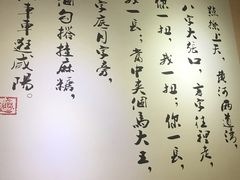 點撩上天 黃河兩道灣,
八字大張口,言字往裡走,
一扭,我一扭;你一長,
一長;當中夾個馬大王,
字底月字旁,
勾搭掛麻糖,
車車逛咸陽。